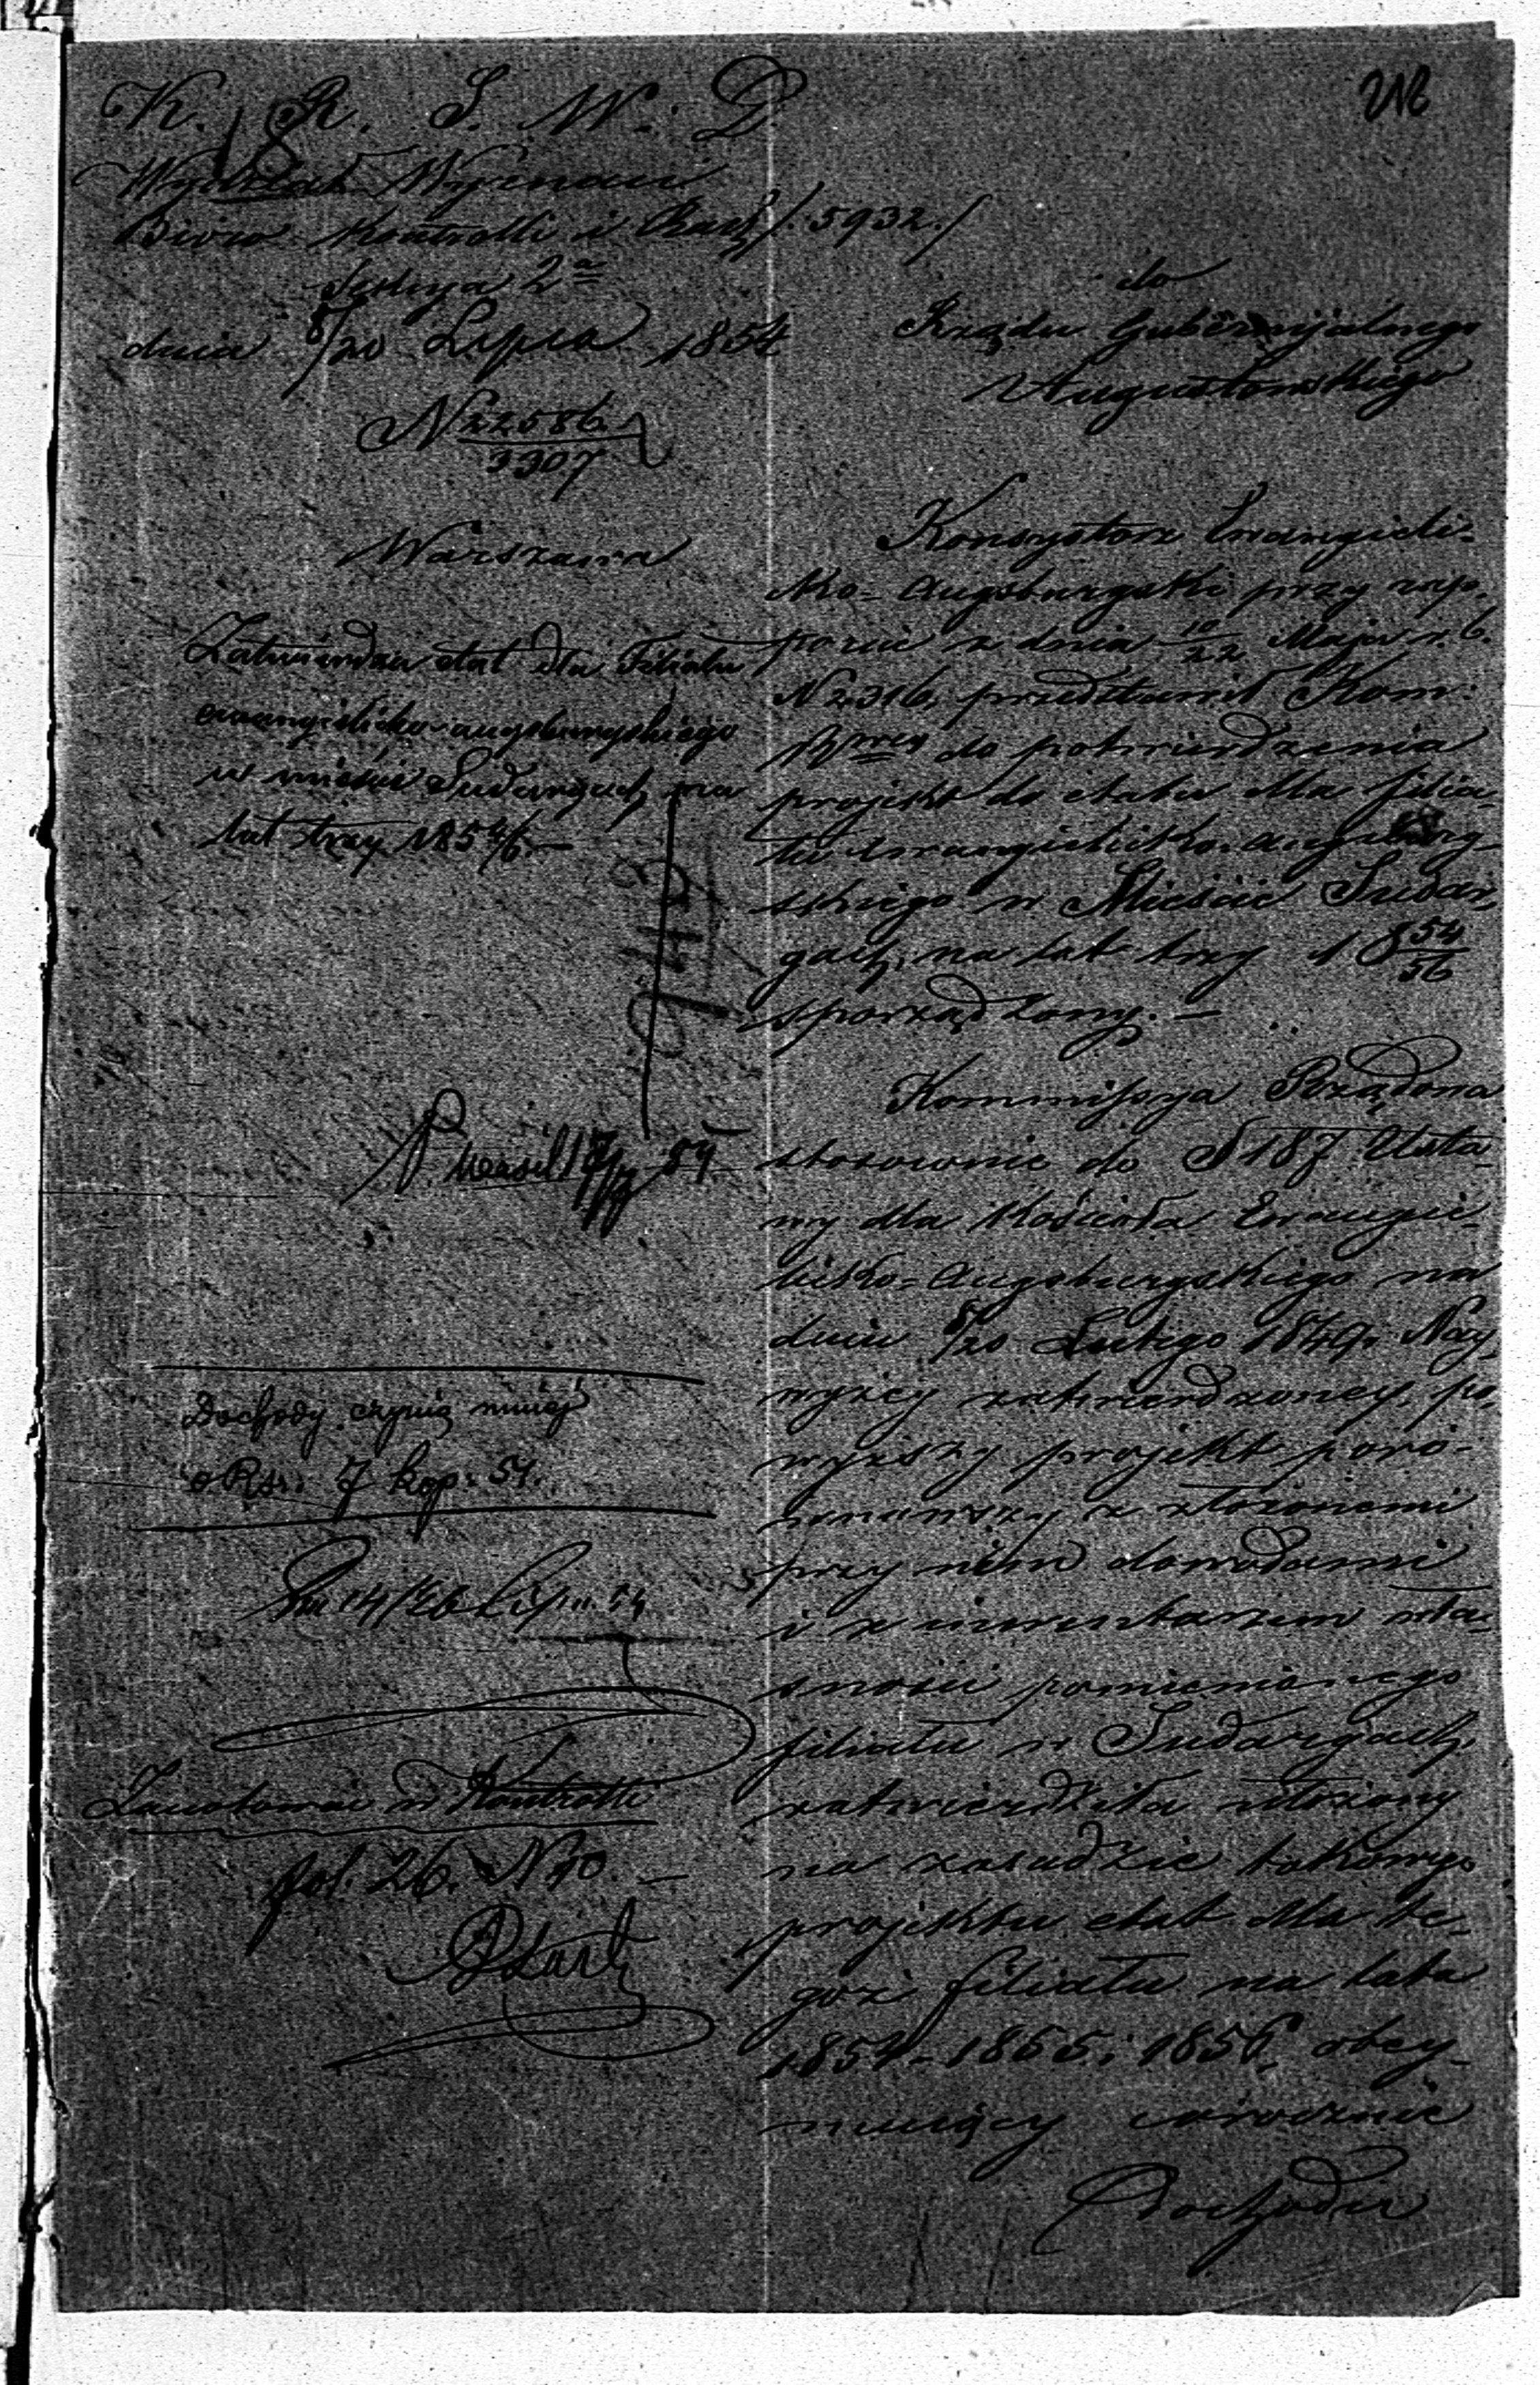 218
K. R. S. W. D
18
Wydział Wyznań
Biuro Kontrolli i Rach /:5932:/
Sekcya 2a
dnia 8/20 Lipca 1854
N 22586
3307
Warszawa
Zatwierdza etat dla Filiału
ewangelicko-augsburgskiego
w mieście Sudargach na
lat trzy 1854/6.—
Dochody czynią mniej
o Rsr. 7 kop. 54.
14/26 Lip 54
Zanotowano w Kontrolli
fol. 26. N 90.—
do
Rządu Gubernijalnego
Augustowskiego
Konsystorz Ewangeli-
cko-Augsburgski przy rap-
porcie z dnia 10/22 Maja r. b.
N 2316, przedstawił Kom:
Rządowey do potwierdzenia
projekt do etatu dla filia-
łu Ewangelicko-augsburg-
skiego w Mieście Sudar-
gach, na lat trzy 1854/56
sporządzony.—
Kommissya Rządowa
stosownie do § 187 Usta-
wy dla Kościoła Ewangie-
licko-Augsburgskiego na
dniu 8/20 Lutego 1849r. Nay-
wyżej zatwierdzoney, po-
wyższy projekt poró-
wnawszy z złożonemi
przy nim dowodami
i z inwentarzem wła-
sności pomienionego
filiału w Sudargach,
zatwierdziła ułożony
na zasadzie takowego
projektu etat dla te-
goż filiału na lata
1854-1855 i 1856, obey-
mujący corocznie
Dochodu